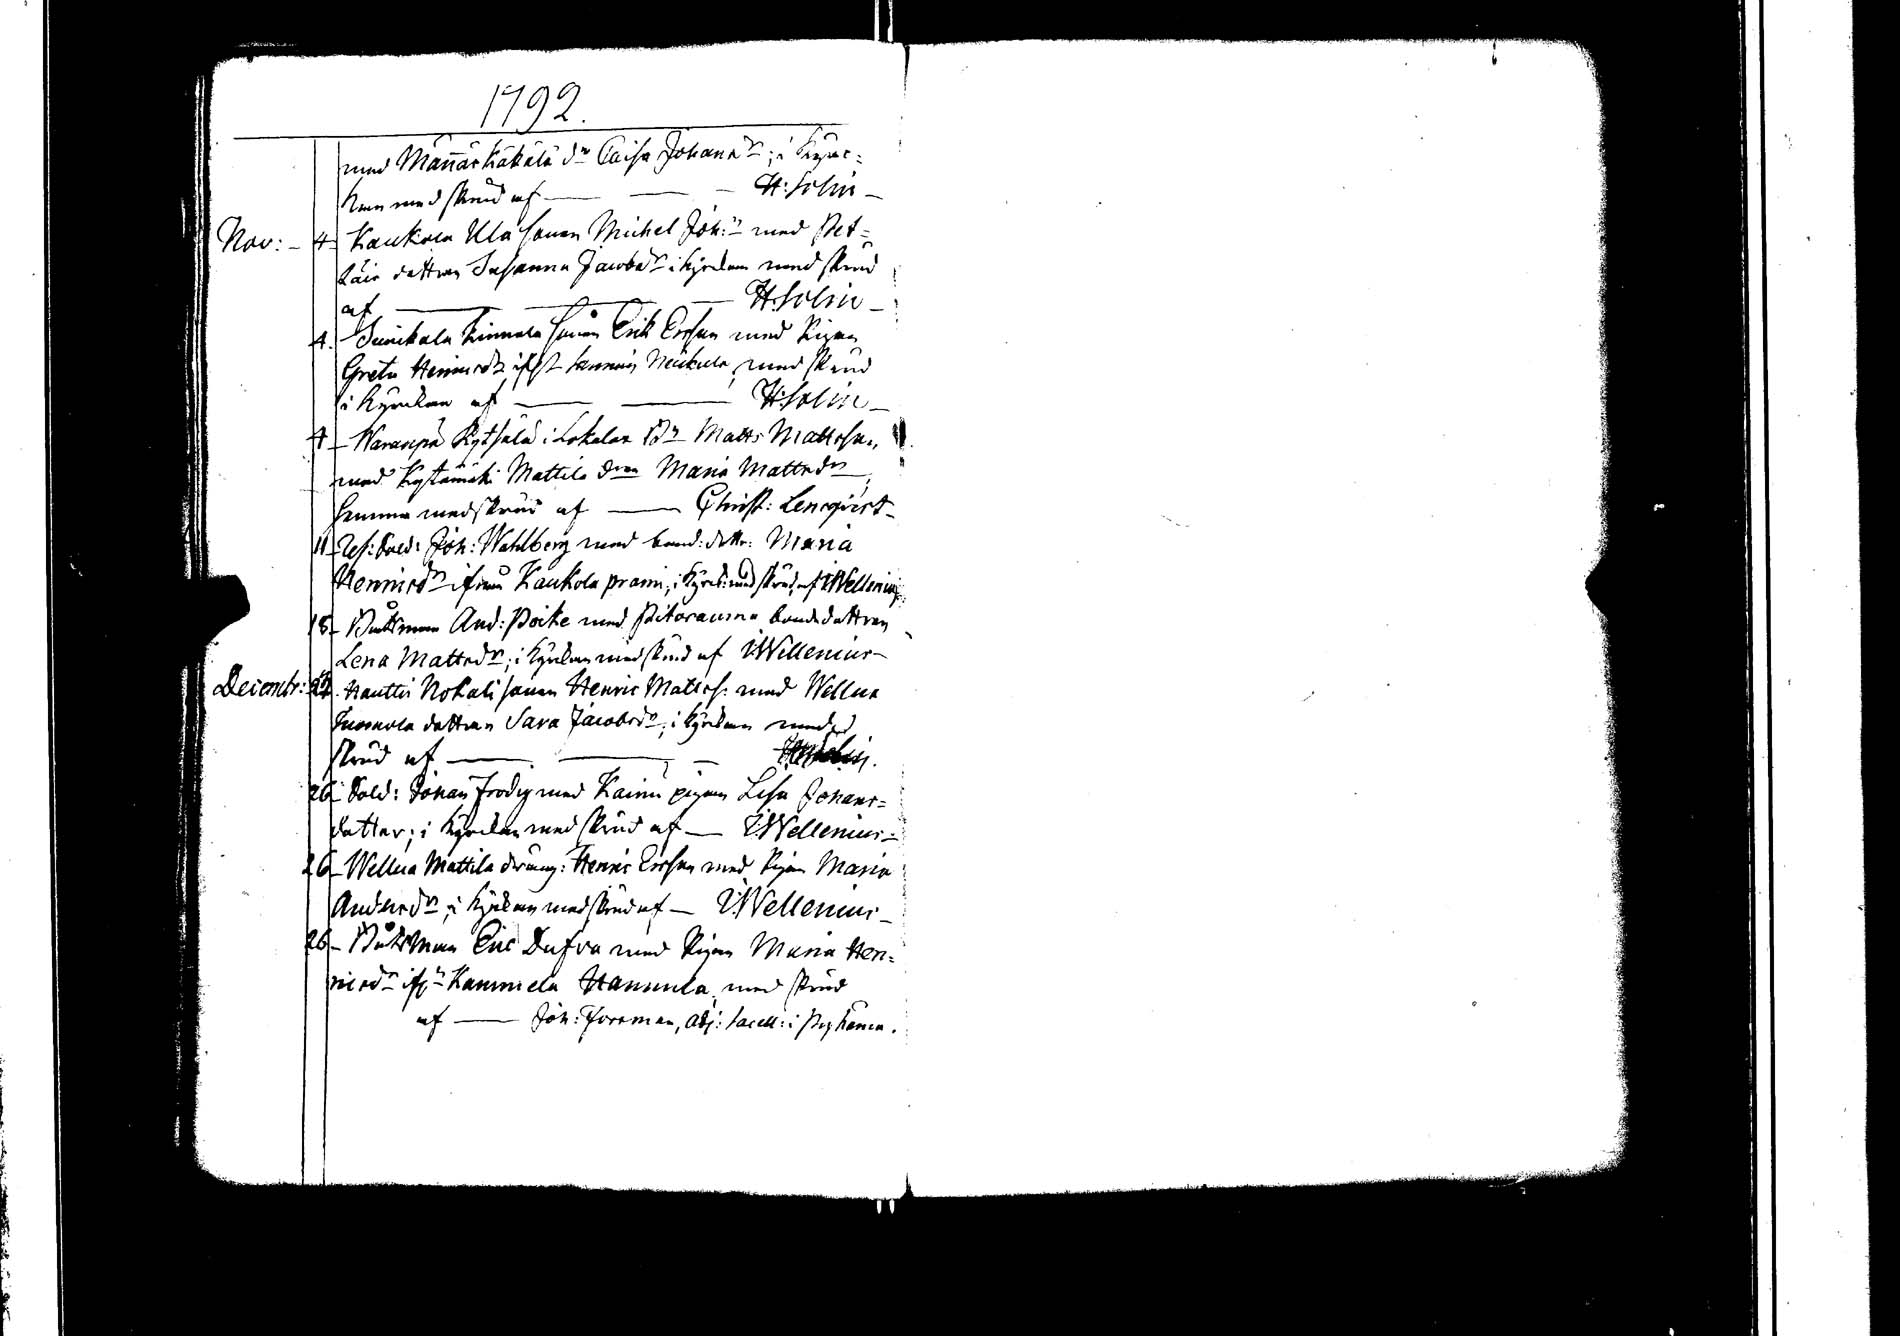 1792.
med Männäis Käkälä dr Caisa Johansdr; i Kyrc=
kan med skrud af — — — H: Solin —
Nov: – 4– Kaukola Ula sonen Michel Joh:n med Pet=
läis dottren Susanna Jacobsdr i kyrckan med skrud
af — — — H: Solin —
4. Sunikala sonen Erik Ersson med Pigan
Greta Henricsdr ifr med skrud
i kyrckan af — — H: Solin —
4– i Lokalax Matts Mattsson,
med Mattila dren Maria Mattsdr,
hemma med skrud af — Christ: Lencqvist –
11– Sold: Joh: Wahlberg med bond: dottr: Maria
Henricsdr ifrån Kaukola; i Kyrck: med skrud af I Wellenius
18– Båtsman And: Poike med Pitorauma bonde dottren
Lena Mattsdr; i Kyrckan med skrud af I Wellenius –
Decembr: Hautti Nokali sonen Henric Mattss: med Wellua
dottren Sara Jacobsdr; i Kyrckan med
skrud af — — —
26– Sold: Johan Frodig med Kainu pigan Lisa Johans=
dotter; i Kyrckan med skrud af — I Wellenius –
26– Wellua Mattila dräng: Henric Ersson med Pigan Maria
Andersdr; i Kyrckan med skrud af — I Wellenius –
26– Båtsman Eric Dufva med Pigan Maria Hen=
ricsdr ifrn Kammela Hannula, med skrud
af — Joh: Forsman, adj: Sacell: i Pyhäma.